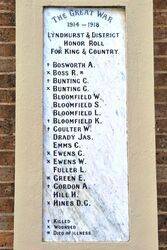 The Great War
1914 - 1918
Lyndhurst & District
Honor Roll
For King & Country.
† Bosworth A.
× Boss R. *
† Bunting C.
× Bunting G.
Bloomfield W.
Bloomfield S.
Bloomfield L.
† Bloomfield K.
† Goulter W.
Drady Jas.
Emms C.
× Ewens G.
× Ewens W.
Fuller L.
* Green E.
† Gordon A.
× Hill H.
× Hines D.G.
† Killed
× Wounded
* Died of Illness